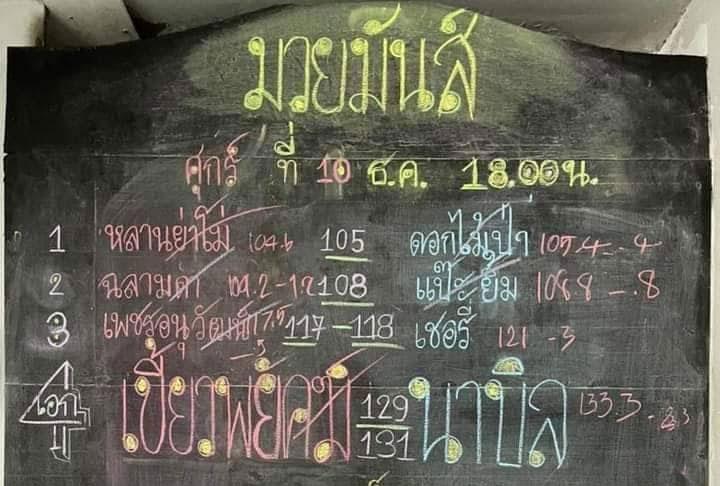 มวยมันส์
ศุกร์ ที่ 10 ธ.ค. 18.00น.
1 หลานย่าโม่ 104.6 105 ดอกไม้ป่า 109.4 -.4
2 ฉลามดำ 109.2-1.2 108 แป๊ะยิ้ม 108.8 -.8
3 เพชรอนุวัฒน์ 117.5 -.5 117-118 เชอรี่ 121 -3
เอก เขี้ยวพยัคฆ์ 129 131 นาบิล 133.3